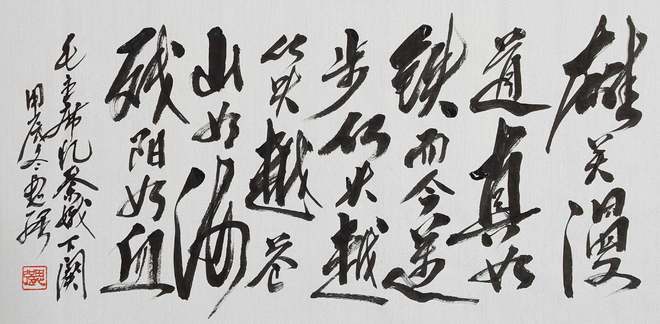 雄关漫
道真如
铁而今迈
步从头越
从头越苍
山如海
残阳如血
毛主席忆秦娥下阕
甲辰冬